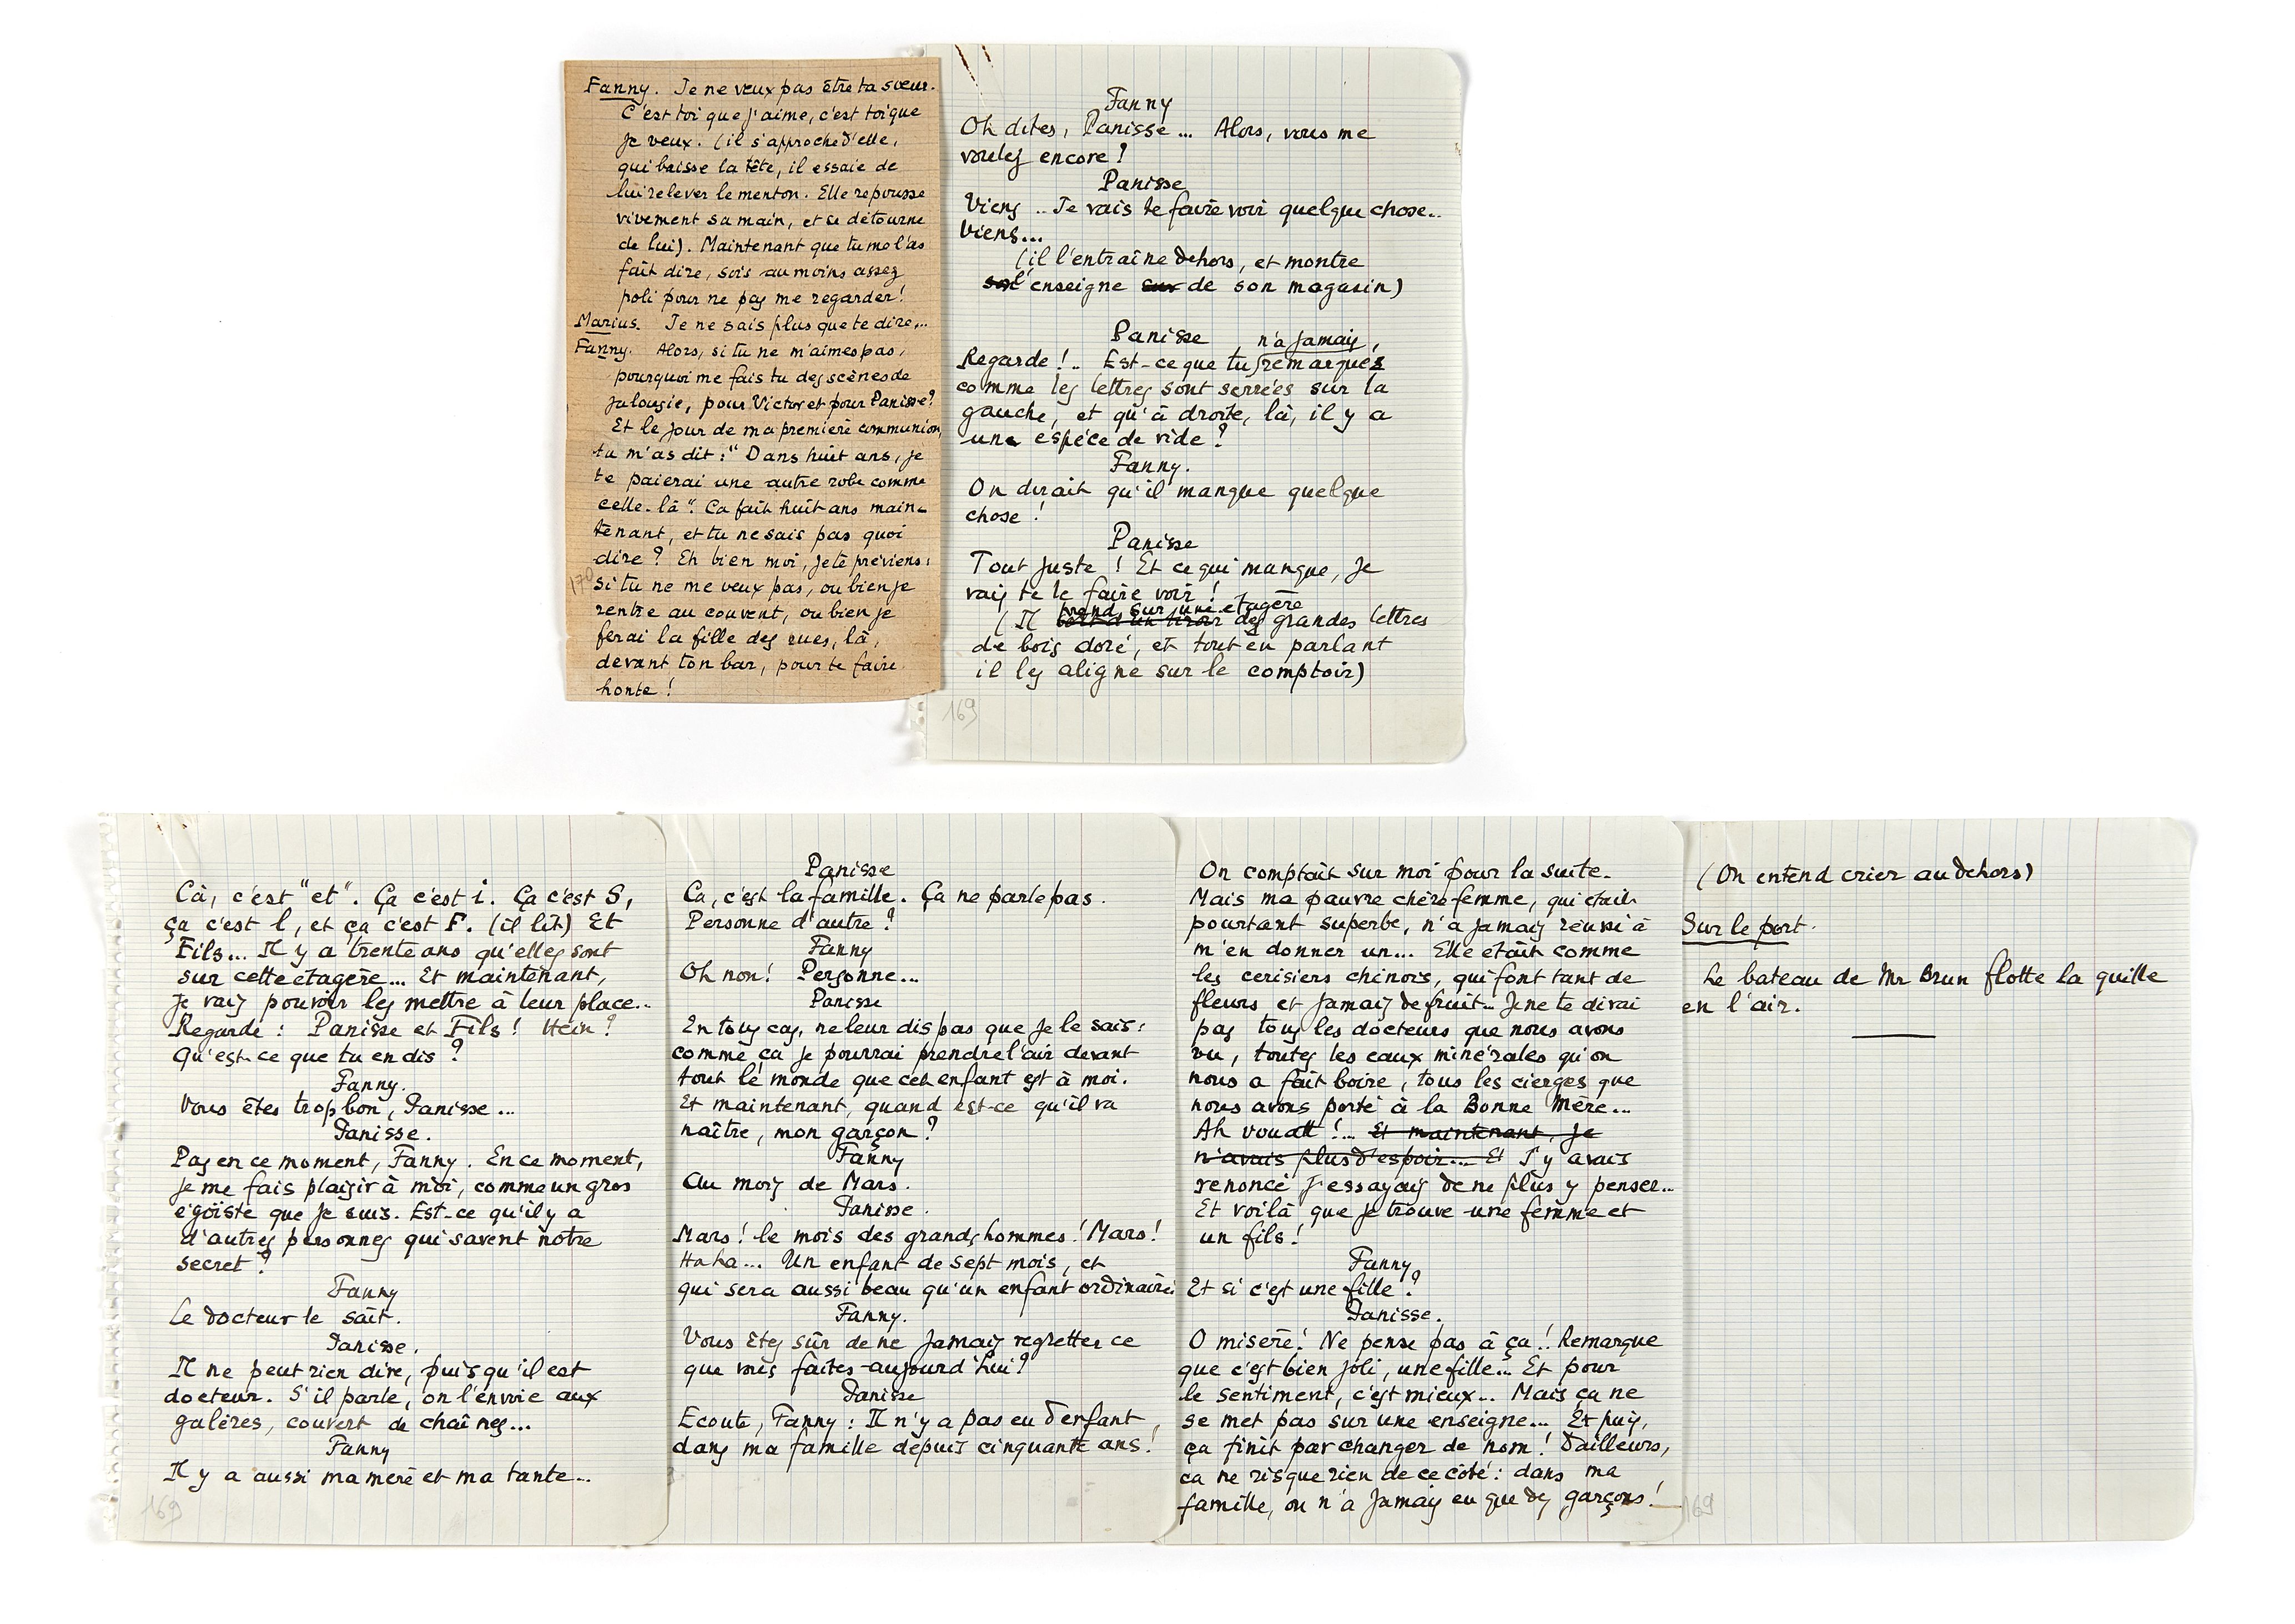 Fanny. Je ne veux pas être ta sœur.
C'est toi que j'aime, c'est toi que
je veux. (il s'approche d'elle,
qui baisse la tête, il essaie de
lui relever le menton. Elle repousse
vivement sa main, et se détourne
de lui). Maintenant que tu me l'as
fait dire, sois au moins assez
poli pour ne pas me regarder!
Marius. Je ne sais plus que te dire...
Fanny. Alors, si tu ne m'aimes pas,
pourquoi me fais tu des scènes de
jalousie, pour Victor et pour Panisse?
Et le jour de ma première communion,
tu m'as dit: "Dans huit ans, je
te paierai une autre robe comme
celle-là". Ca fait huit ans main-
tenant, et tu ne sais pas quoi
dire? Eh bien moi, je te préviens:
si tu ne me veux pas, ou bien je
rentre au couvent, ou bien je
ferai la fille des rues, là,
devant ton bar, pour te faire
honte!
170
Fanny
Oh dites, Panisse... Alors, vous me
voulez encore?
Panisse
Viens.. Je vais te faire voir quelque chose..
Viens...
(il l'entraîne dehors, et montre
son l'enseigne sur de son magasin)
Panisse
n'a jamais,
Regarde!.. Est-ce que tu remarqués
comme les lettres sont serrées sur la
gauche, et qu'à droite, là, il y a
une espéce de vide?
Fanny.
On dirait qu'il manque quelque
chose!
Panisse
Tout juste! Et ce qui manque, je
vais te le faire voir!
prend sur une etagère
(Il sort d'un tiroir des grandes lettres
de bois doré, et tout en parlant
il les aligne sur le comptoir)
169
Cà, c'est "et". Ça c'est i. Ça c'est S,
ça c'est l, et ça c'est F. (il lit) Et
Fils... Il y a trente ans qu'elles sont
sur cette etagère... Et maintenant,
je vais pouvoir les mettre à leur place...
Regarde: Panisse et Fils! Hein?
Qu'est-ce que tu en dis?
Fanny.
Vous êtes trop bon, Panisse...
Panisse.
Pas en ce moment, Fanny. En ce moment,
je me fais plaisir à moi, comme un gros
égoïste que je suis. Est-ce qu'il y a
d'autres personnes qui savent notre
secret?
Fanny
Le docteur le sait.
Panisse.
Il ne peut rien dire, puisqu'il est
docteur. S'il parle, on l'envoie aux
galères, couvert de chaînes...
Fanny
Il y a aussi ma mère et ma tante...
169
Panisse
Ca, c'est la famille. Ça ne parle pas.
Personne d'autre?
Fanny
Oh non! Personne...
Panisse
En tous cas, ne leur dis pas que je le sais:
comme ça je pourrai prendre l'air devant
tout le monde que cet enfant est à moi.
Et maintenant, quand est-ce qu'il va
naître, mon garçon?
Fanny
Au mois de Mars.
Panisse.
Mars! le mois des grands hommes! Mars!
Ha ha... Un enfant de sept mois, et
qui sera aussi beau qu'un enfant ordinaire!
Fanny.
Vous êtes sûr de ne jamais regretter ce
que vous faites aujourd'hui?
Panisse
Ecoute, Fanny: Il n'y a pas eu d'enfant
dans ma famille depuis cinquante ans!
On comptait sur moi pour la suite.
Mais ma pauvre chère femme, qui était
pourtant superbe, n'a jamais réussi à
m'en donner un... Elle etait comme
les cerisiers chinois, qui font tant de
fleurs et jamais de fruit... Je ne te dirai
pas tous les docteurs que nous avons
vu, toutes les eaux minérales qu'on
nous a fait boire, tous les cierges que
nous avons porté à la Bonne Mère...
Ah vouatt!... Et maintenant, je
n'avais plus d'espoir... Et J'y avais
renoncé J'essayais de ne plus y penser...
Et voilà que je trouve une femme et
un fils!
Fanny
Et si c'est une fille?
Panisse.
O misère! Ne pense pas à ça! Remarque
que c'est bien joli, une fille... Et pour
le sentiment, c'est mieux... Mais ça ne
se met pas sur une enseigne... Et puis,
ça finit par changer de nom! D'ailleurs,
ca ne risque rien de ce côté: dans ma
famille, on n'a jamais eu que des garçons!
(On entend crier au dehors)
Sur le port.
Le bateau de Mr Brun flotte la quille
en l'air.
169